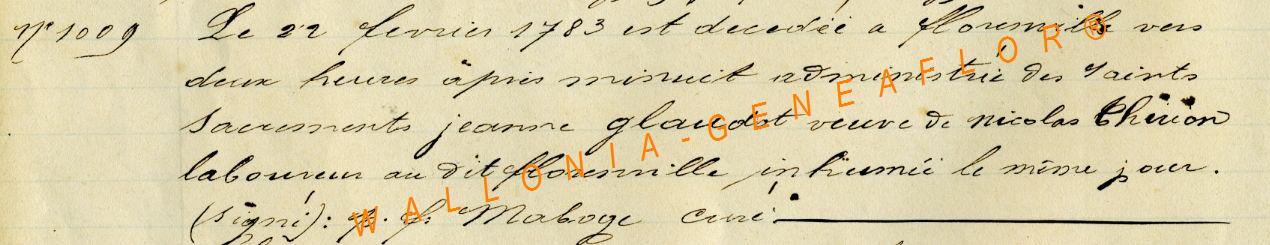 n° 1009 Le 22 fevrier 1783 est decedée a florenville vers
deux heures âpres minuit administrée des saints
Sacrements jeanne glaudot veuve de nicolas Thirion
laboureur au dit florenville inhumée le même jour.
(signé): f. Maboge curé.
WALLONIA-GENEAFLOR©